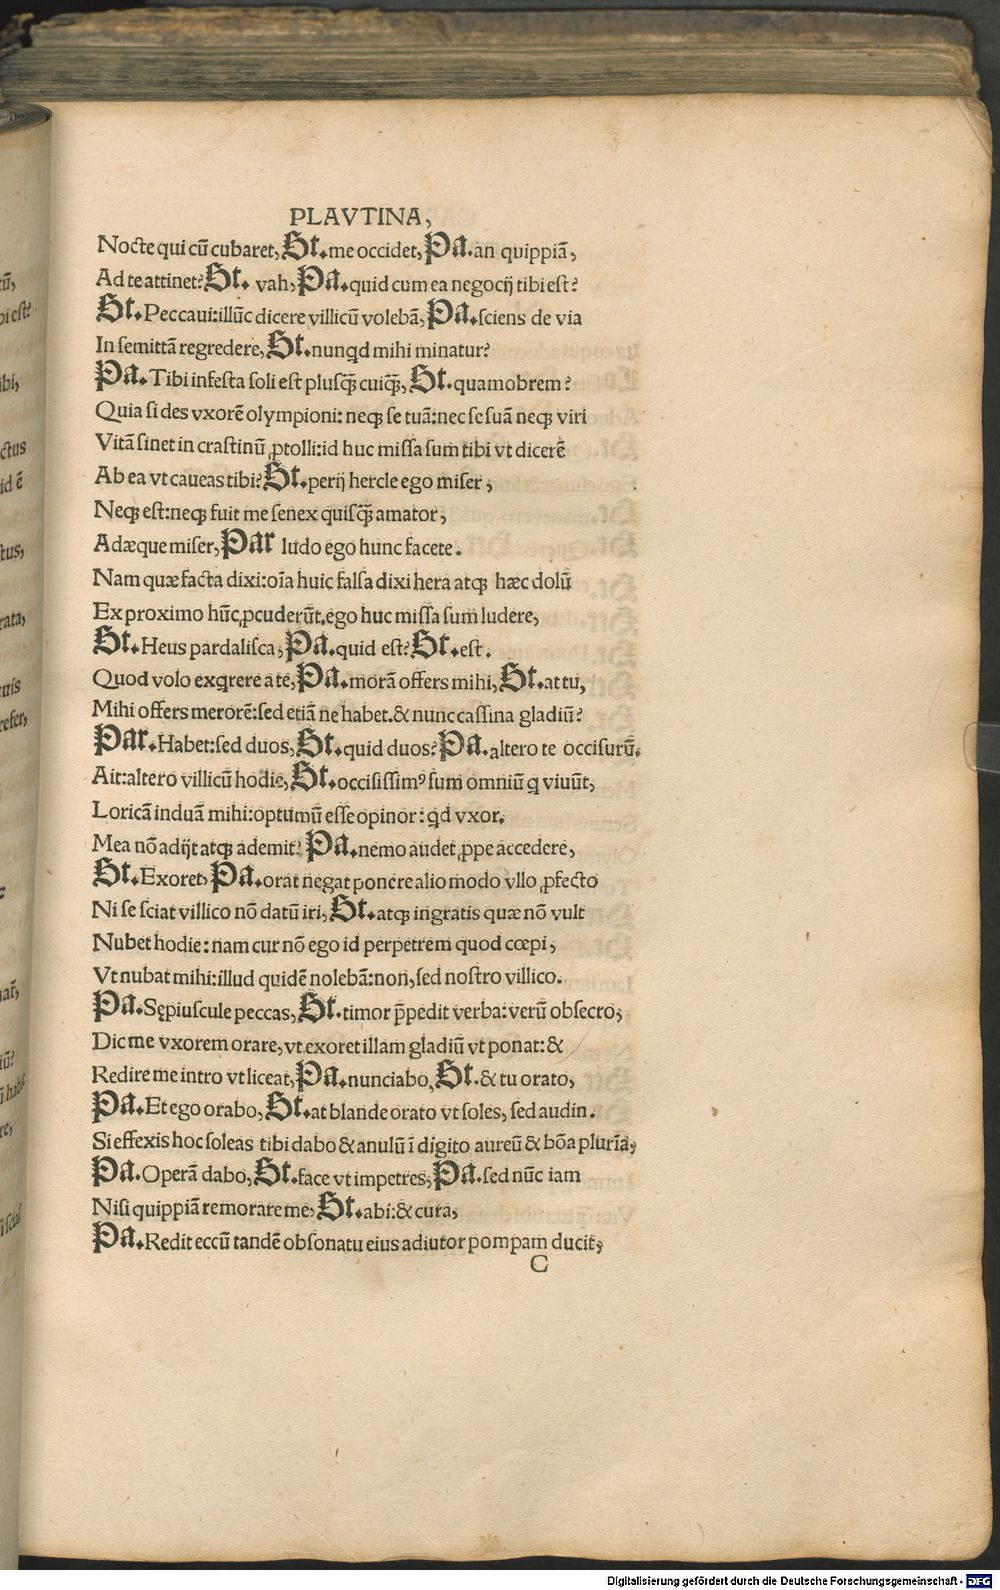 PLAVTINA,
Nocte qui cū cubaret, St. me occidet, Pa. an quippiā,
Ad te attinet? St. vah, Pa. quid cum ea negocij tibi est?
St. Peccaui: illūc dicere villicū volebā, Pa. sciens de via
In semittā regredere, St. nunqd mihi minatur?
Pa. Tibi infesta soli est plusꝗ̄ cuiꝗ̄, St. quamobrem?
Quia si des vxorē olympioni: neqꝫ se tuā: nec se suā neqꝫ viri
Vitā sinet in crastinū ꝓtolli: id huc missa sum tibi vt dicerē
Ab ea vt caueas tibi? St. perij hercle ego miser,
Neqꝫ est: neqꝫ fuit me senex quisꝗ̄ amator,
Adæque miser, Par ludo ego hunc facete.
Nam quæ facta dixi: oīa huic falsa dixi hera atqꝫ hæc dolū
Ex proximo hūc ꝓcuderūt. ego huc missa sum ludere,
St. Heus pardalisca, Pa. quid est? St. est.
Quod volo exqrere a te, Pa. morā offers mihi, St. at tu,
Mihi offers merorē: sed etiā ne habet. & nunc cassina gladiū?
Par. Habet: sed duos, St. quid duos? Pa. altero te occisurū.
Ait: altero villicū hodie, St. occisissimꝰ sum omniū q viuūt,
Loricā induā mihi: optumū esse opinor: qd vxor.
Mea nō adijt atqꝫ ademit? Pa. nemo audet ꝓpe accedere,
St. Exoret, Pa. orat negat ponere alio modo vllo ꝓfecto
Ni se sciat villico nō datū iri, St. atqꝫ ingratis quæ nō vult
Nubet hodie: nam cur nō ego id perpetrem quod cœpi,
Vt nubat mihi: illud quidē nolebā: non, sed nostro villico.
Pa. Sępiuscule peccas, St. timor p̄pedit verba: verū obsecro,
Dic me vxorem orare, vt exoret illam gladiū vt ponat: &
Redire me intro vt liceat, Pa. nunciabo, St. & tu orato,
Pa. Et ego orabo, St. at blande orato vt soles, sed audin.
Si effexis hoc soleas tibi dabo & anulū ī digito aureū & bōa plurīa,
Pa. Operā dabo, St. face vt impetres, Pa. sed nūc iam
Nisi quippiā remorare me, St. abi: & cura,
Pa. Redit eccū tandē obsonatu eius adiutor pompam ducit,
C
Digitalisierung gefördert durch die Deutsche Forschungsgemeinschaft - DFG